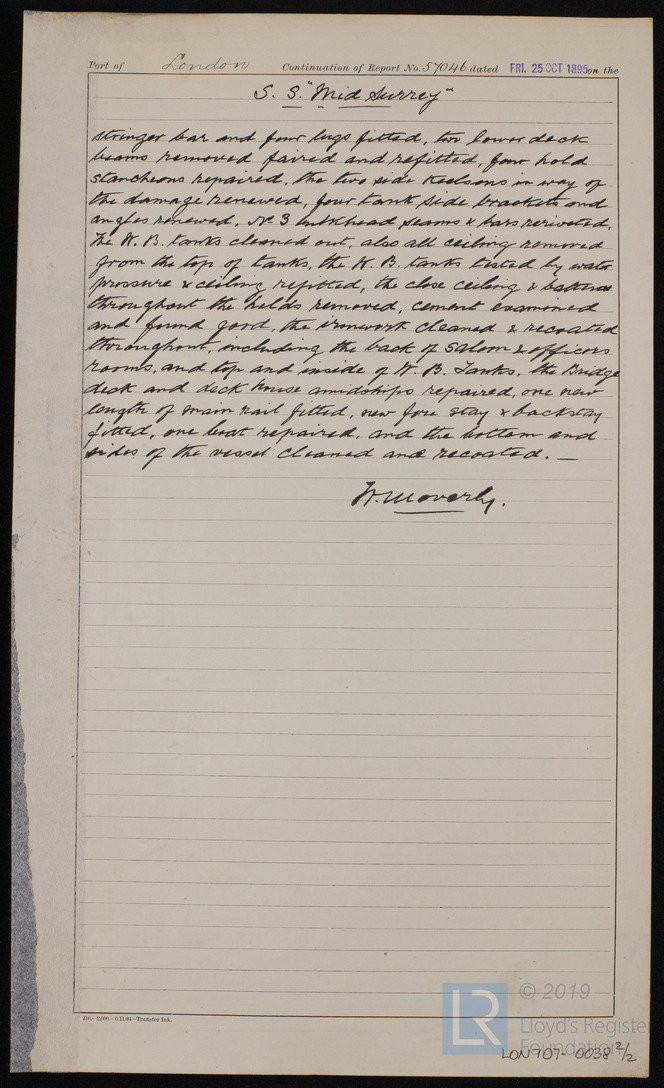 Port of London Continuation of Report No. 57046 dated FRI. 25 OCT 1895 on the
S. S. "Mid Surrey"
stringer bar and four lugs fitted, two lower deck
beams removed faired and refitted, four hold
stancheons repaired, the two side keelsons in way of
the damage renewed, four tank side brackets and
angles renewed, No 3 bulkhead seams & bars reriveted.
The W. B. tanks cleaned out, also all ceiling removed
from the top of tanks, the W. B. tanks tested by water
pressure & ceiling refitted, the close ceiling & battens
throughout the holds removed, cement examined
and found good, the ironwork cleaned & recoated
throughout, including the back of Saloon & officers
rooms, and top and inside of W. B. Tanks, the Bridge
deck and deck house amidships repaired, one new
length of main rail fitted, new fore stay & backstay
fitted, one boat repaired, and the bottom and
sides of the vessel cleaned and recoated. —
W. Moverly.
2,000.—6/11/94—Transfer Ink.
© 2019
LR
Lloyd's Register
Foundation
LON707-0038 2/2